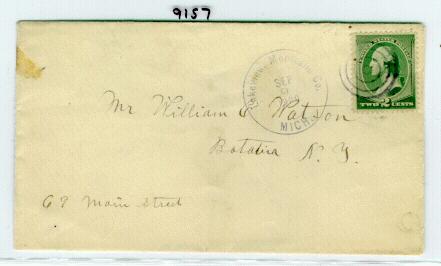 9157
Lakeview Montcalm Co.
SEP
MICH.
TWO 2 CENTS
Mr William S Watson
Batavia N. Y.
69 Main Street